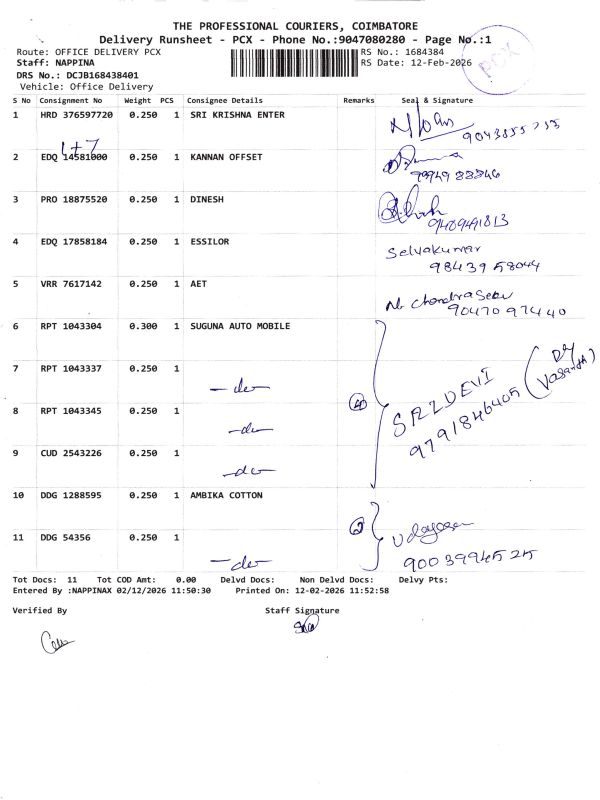 THE PROFESSIONAL COURIERS, COIMBATORE
Delivery Runsheet - PCX - Phone No.:9047080280 - Page No.:1
Route: OFFICE DELIVERY PCX RS No.: 1684384
Staff: NAPPINA RS Date: 12-Feb-2026
PCX
DRS No.: DCJB168438401
Vehicle: Office Delivery
S No Consignment No Weight PCS Consignee Details Remarks Seal & Signature
1 HRD 376597720 0.250 1 SRI KRISHNA ENTER
1+7
2 EDQ 14581000 0.250 1 KANNAN OFFSET
9994988846
3 PRO 18875520 0.250 1 DINESH
9489491813
4 EDQ 17858184 0.250 1 ESSILOR Selvakumar
9843958044
5 VRR 7617142 0.250 1 AET
N. Chandrasekar
9047097440
6 RPT 1043304 0.300 1 SUGUNA AUTO MOBILE
7 RPT 1043337 0.250 1
-do-
(4) SRIDEVI
9791846405
(Vasanth)
8 RPT 1043345 0.250 1
-do-
9 CUD 2543226 0.250 1
-do-
10 DDG 1288595 0.250 1 AMBIKA COTTON
(2)
11 DDG 54356 0.250 1
-do-
9003994525
Tot Docs: 11 Tot COD Amt: 0.00 Delvd Docs: Non Delvd Docs: Delvy Pts:
Entered By :NAPPINAX 02/12/2026 11:50:30 Printed On: 12-02-2026 11:52:58
Verified By Staff Signature